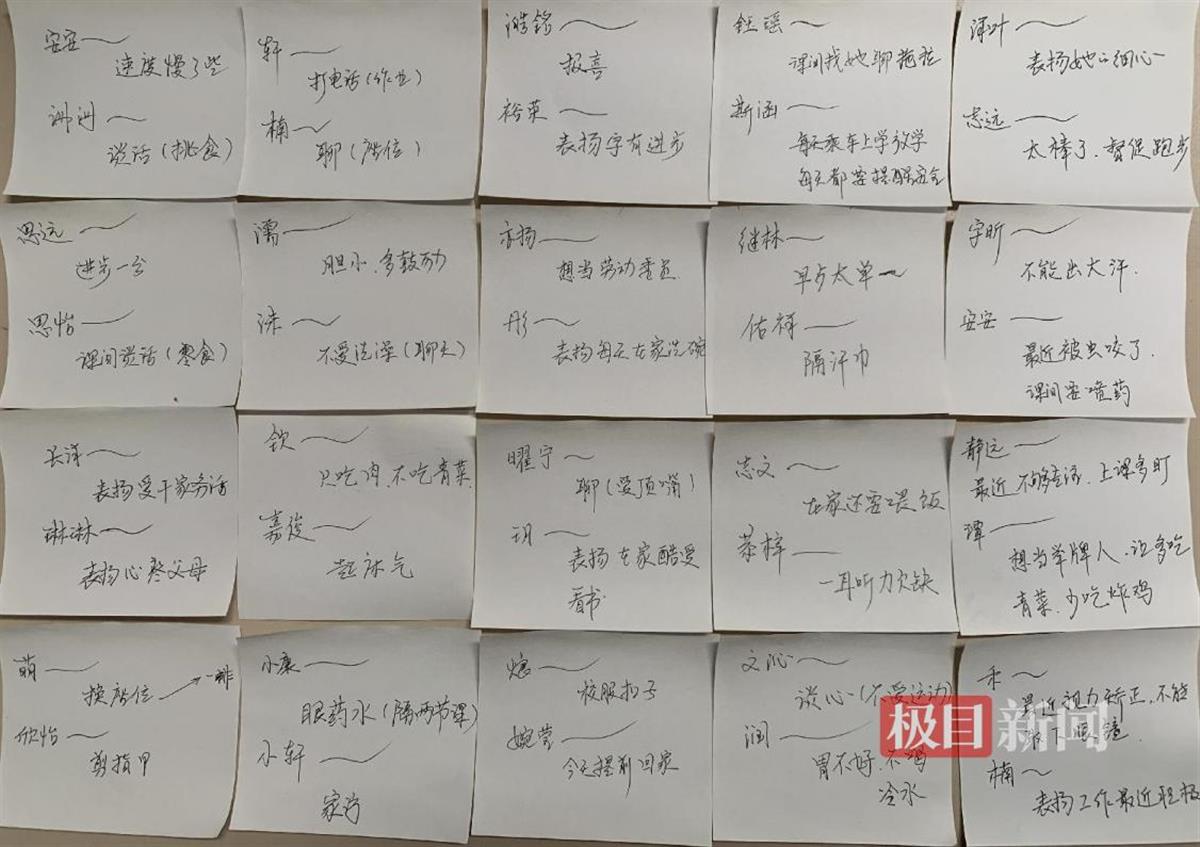 安安
速度慢了些
洲洲
谈话(挑食)
轩
打电话(作业)
楠
聊(座位)
浩铭
报喜
裕荣
表扬字有进步
钰瑶
课间找她聊
斯涵
每天乘车上学放学
每天都要提醒安全
泽叶
表扬她的细心
志远
太棒了.督促跑步
思远
进步一分
思怡
课间谈话(零食)
濡
胆小.多鼓励
涂
不爱洗澡(聊天)
亦扬
想当劳动委员
彤
表扬每天在家洗碗
继林
早点太单一
佑祥
隔汗巾
宇昕
不能出大汗.
安安
最近被虫咬了.
课间要喷药
长泽
表扬爱干家务活
琳琳
表扬心疼父母
钦
只吃肉.不吃青菜
嘉俊
起床气
曜宁
聊(爱顶嘴)
玥
表扬在家酷爱
看书
志文
在家还要喂饭
恭梓
一耳听力欠缺
静远
最近不够专注.上课多盯
谭
想当举牌人.让多吃
青菜.少吃炸鸡
萌
换座位→一排
欣怡
剪指甲
小康
眼药水(隔两节课)
小轩
家访
熜
校服扣子
婉莹
今天提前回家
文沁
谈心(不爱运动)
润
胃不好.不喝
冷水
禾
最近视力矫正.不能
取下眼镜
楠
表扬工作最近积极
极目新闻